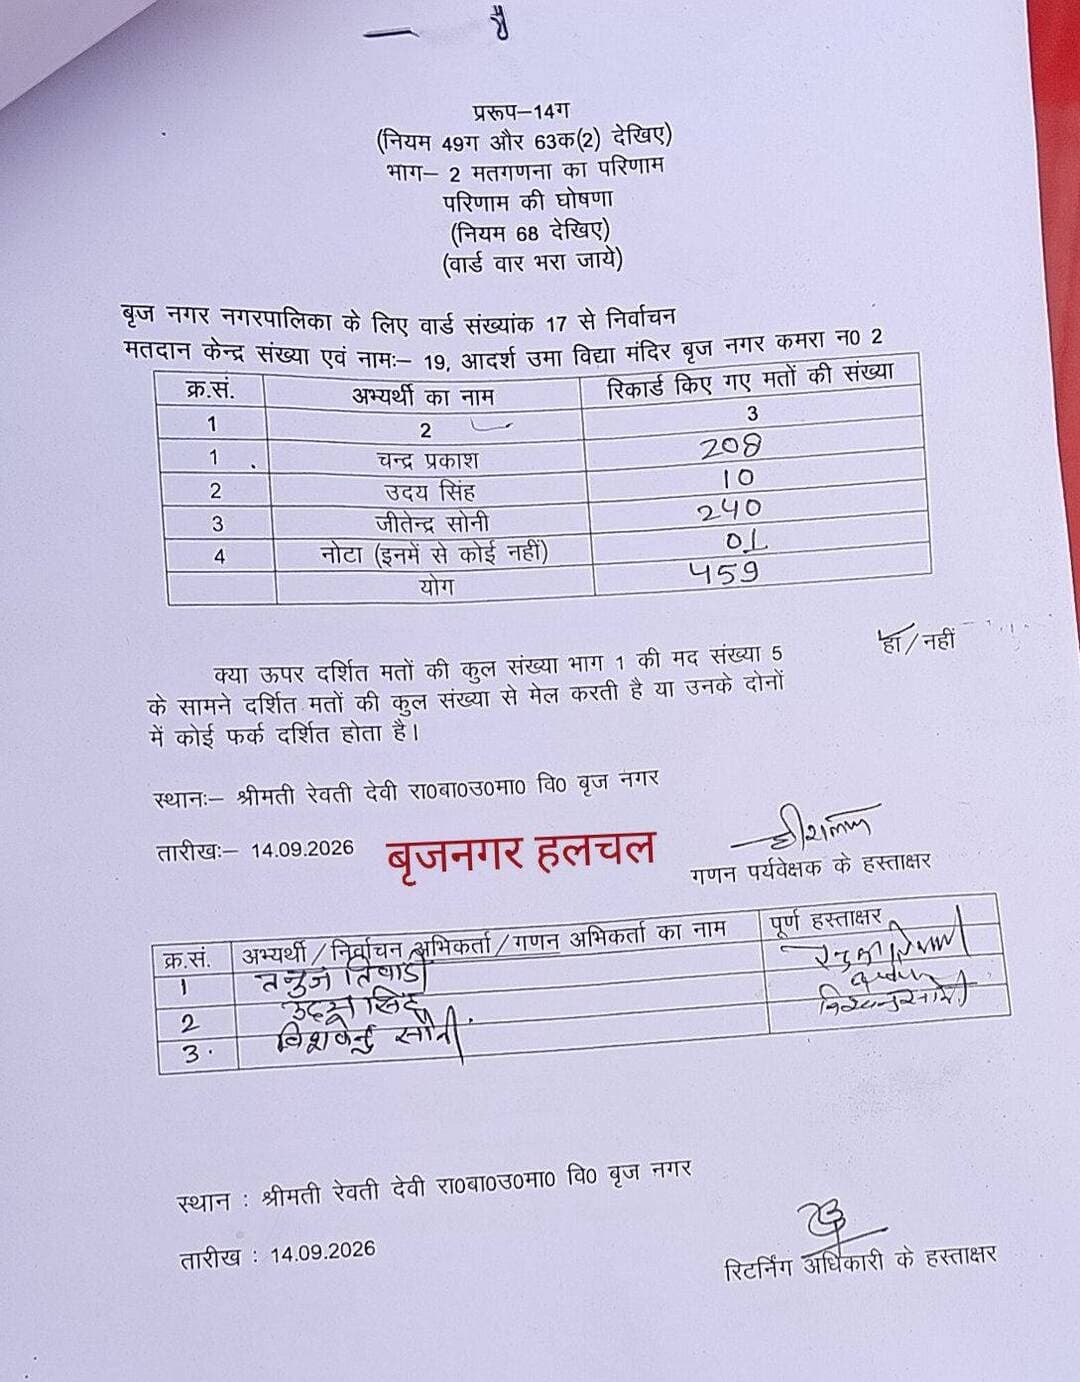 प्ररूप–14ग
(नियम 49ग और 63क(2) देखिए)
भाग– 2 मतगणना का परिणाम
परिणाम की घोषणा
(नियम 68 देखिए)
(वार्ड वार भरा जाये)
बृज नगर नगरपालिका के लिए वार्ड संख्यांक 17 से निर्वाचन
मतदान केन्द्र संख्या एवं नामः– 19, आदर्श उमा विद्या मंदिर बृज नगर कमरा न0 2
क्र.सं. अभ्यर्थी का नाम रिकार्ड किए गए मतों की संख्या
1 2 3
1 चन्द्र प्रकाश 208
2 उदय सिंह 10
3 जीतेन्द्र सोनी 240
4 नोटा (इनमें से कोई नहीं) 01
योग 459
क्या ऊपर दर्शित मतों की कुल संख्या भाग 1 की मद संख्या 5 हां/नहीं
के सामने दर्शित मतों की कुल संख्या से मेल करती है या उनके दोनों
में कोई फर्क दर्शित होता है।
स्थानः– श्रीमती रेवती देवी रा0बा0उ0मा0 वि0 बृज नगर
तारीखः– 14.09.2026
बृजनगर हलचल
गणन पर्यवेक्षक के हस्ताक्षर
क्र.सं. अभ्यर्थी/निर्वाचन अभिकर्ता/गणन अभिकर्ता का नाम पूर्ण हस्ताक्षर
1 तनुज तिवाडी
2 सिंह
3. सोनी
स्थान : श्रीमती रेवती देवी रा0बा0उ0मा0 वि0 बृज नगर
तारीख : 14.09.2026
रिटर्निंग अधिकारी के हस्ताक्षर